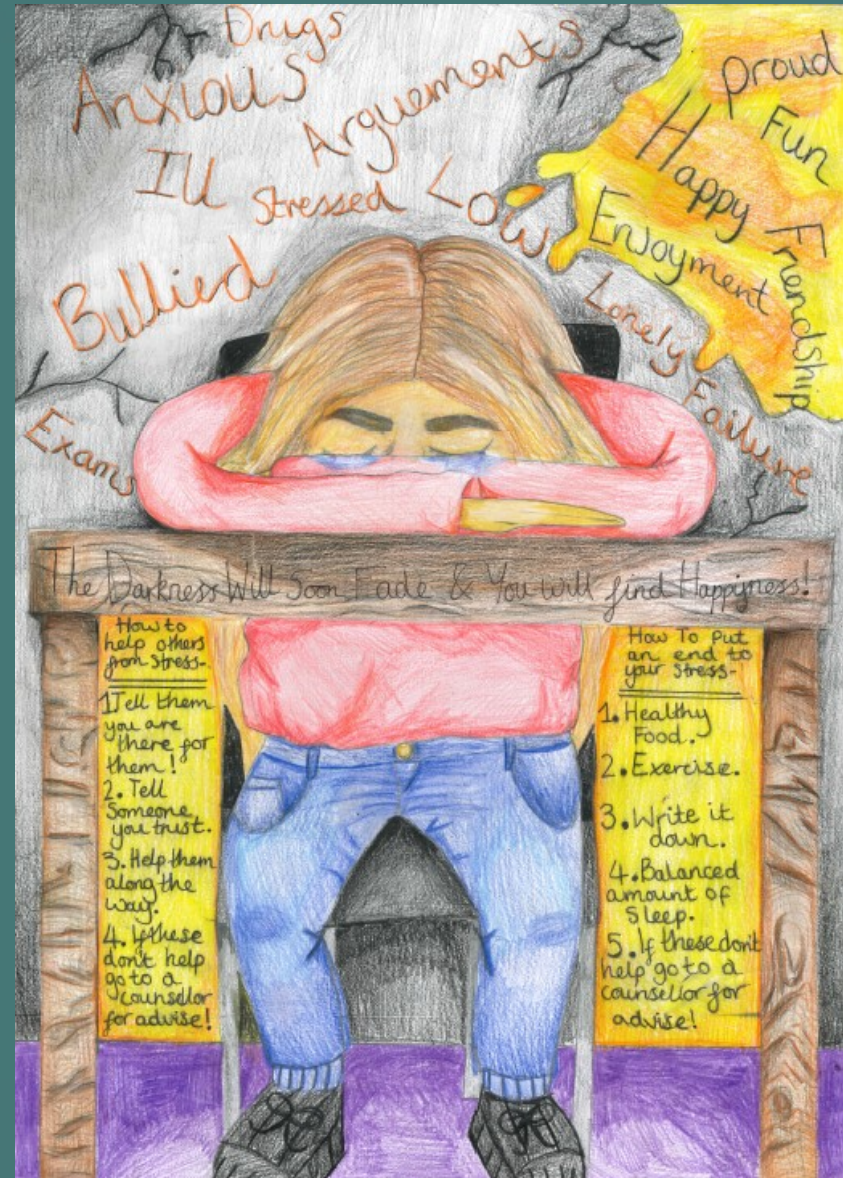 Drugs
Anxious
Arguements
Ill
Stressed
Low
Bullied
Exams
Proud
Fun
Happy
Enjoyment
Friendship
Lonely
Failure
The Darkness Will Soon Fade & You will find Happyness!
How to
help others
from stress-
1 Tell them
you are
there for
them!
2. Tell
Someone
you trust.
3. Help them
along the
way.
4. If these
don't help
go to a
counsellor
for advise!
How To put
an end to
your stress-
1. Healthy
Food.
2. Exercise.
3. Write it
down.
4. Balanced
amount of
Sleep.
5. If these don't
help go to a
counsellor for
advise!